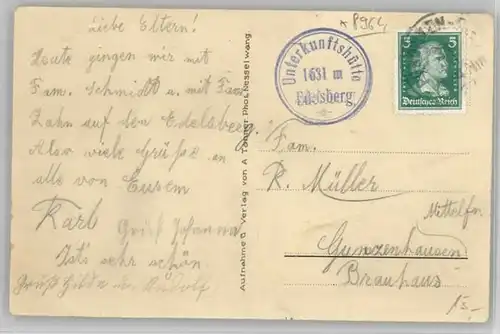 Liebe Eltern!
Heute gingen wir mit
Fam. Schmidt u. mit Fam
Zahn auf den Edelsberg.
Also viele Grüße an
alle von Eurem
Karl
Gruß Johanna
Ist sehr schön
Gruß Hilde Rudolf
Aufnahme u. Verlag von A Phot. Nesselwang.
* 8964
Unterkunftshütte
1631 m
Edelsberg
5 5
Deutsches Reich
Fam.
R. Müller
Mittelfr.
Gunzenhausen
Brauhaus